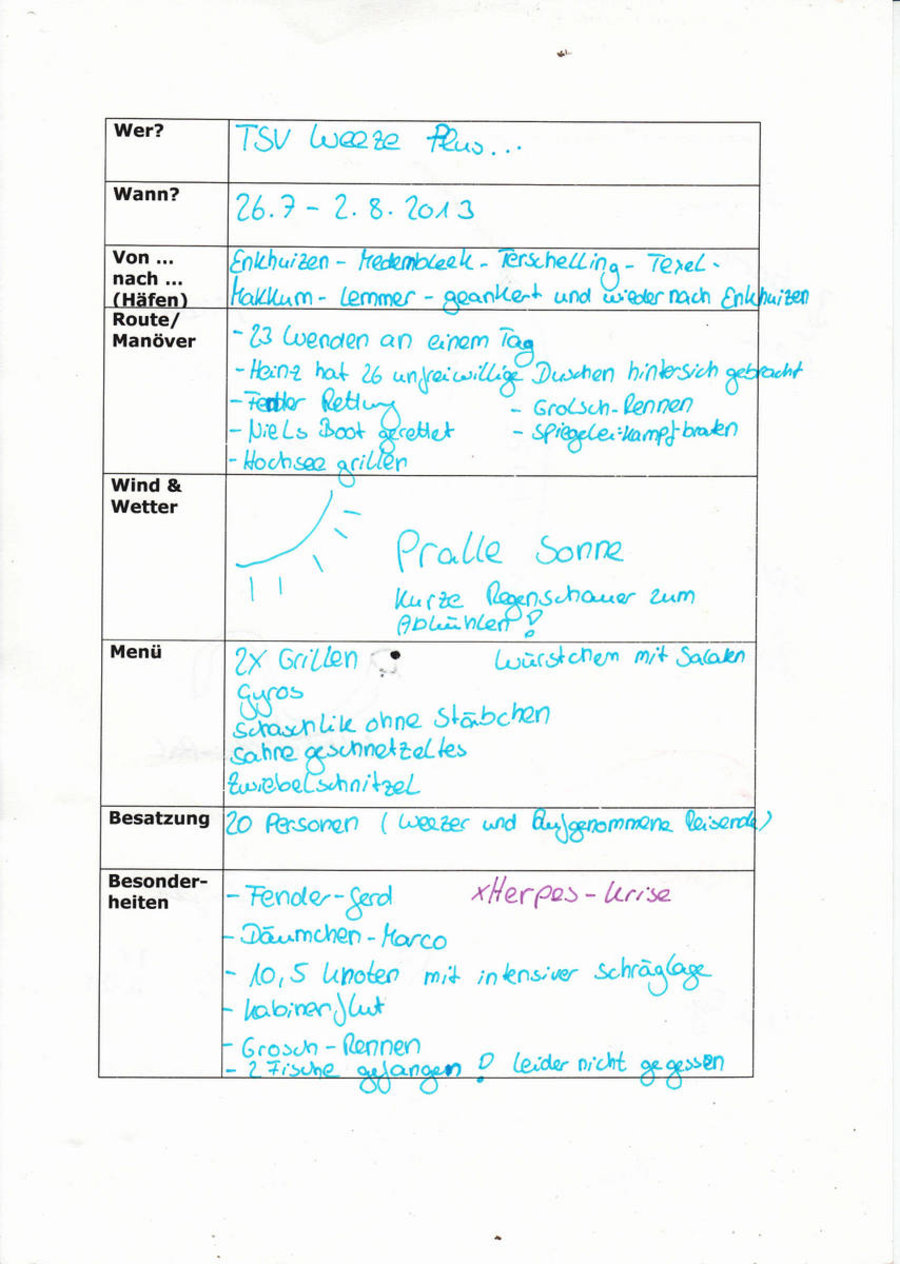 Wer?
TSV Weeze Plus...
Wann?
26.7 - 2.8.2013
Von ...
nach ...
(Häfen)
Enkhuizen - Medembleek - Terschelling - Texel -
Makkum - Lemmer - geankert und wieder nach Enkhuizen
Route/
Manöver
- 23 Wenden an einem Tag
- Heinz hat 26 unfreiwillige Duschen hintersich gebracht
- Fender Rettung - Grolsch-Rennen
- Niels Boot gerettet - Spiegelei-kampf-braten
- Hochsee grillen
Wind &
Wetter
Pralle Sonne
Kurze Regenschauer zum
Abkühlen!
Menü
2x Grillen Würstchem mit Salaten
Gyros
Schaschlik ohne Stäbchen
Sahne geschnetzeltes
Zwiebelschnitzel
Besatzung
20 Personen (Weezer und Aufgenommene Reisende)
Besonder-
heiten
- Fender-Gerd xHerpes-Krise
- Däumchen-Marco
- 10,5 Knoten mit intensiver Schräglage
- Kabinenflut
- Grosch-Rennen
- 2 Fische gefangen! Leider nicht gegessen